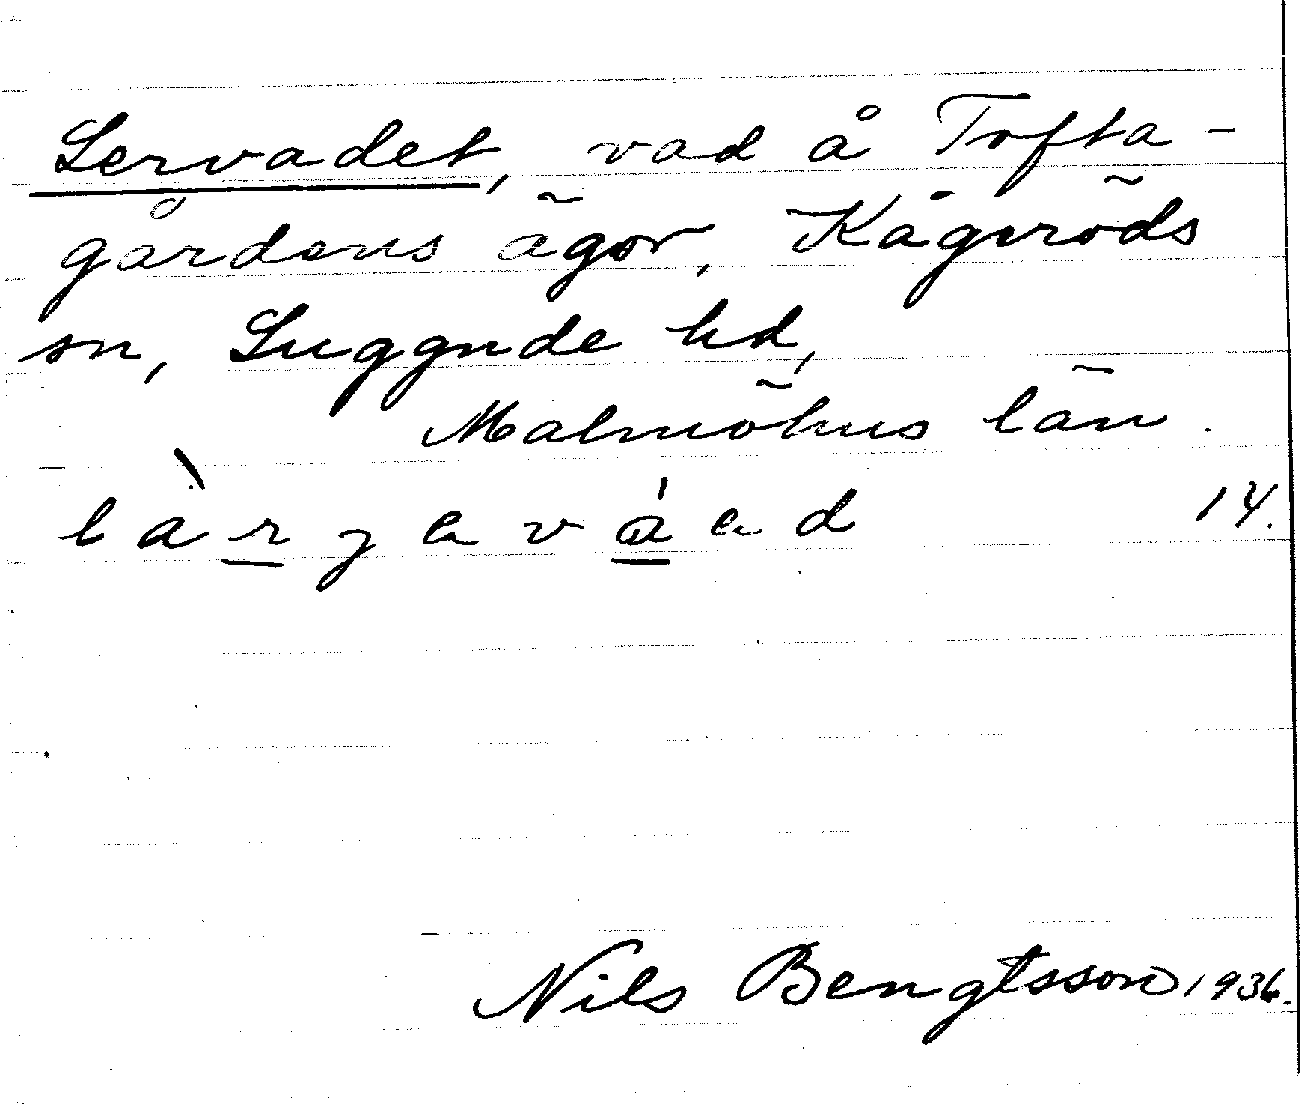 Lervadet, vad å Tofta-
gårdens ägor, Kågeröds
sn, Luggude hd,
Malmöhus län.
14.
Nils Bengtsson 1936.